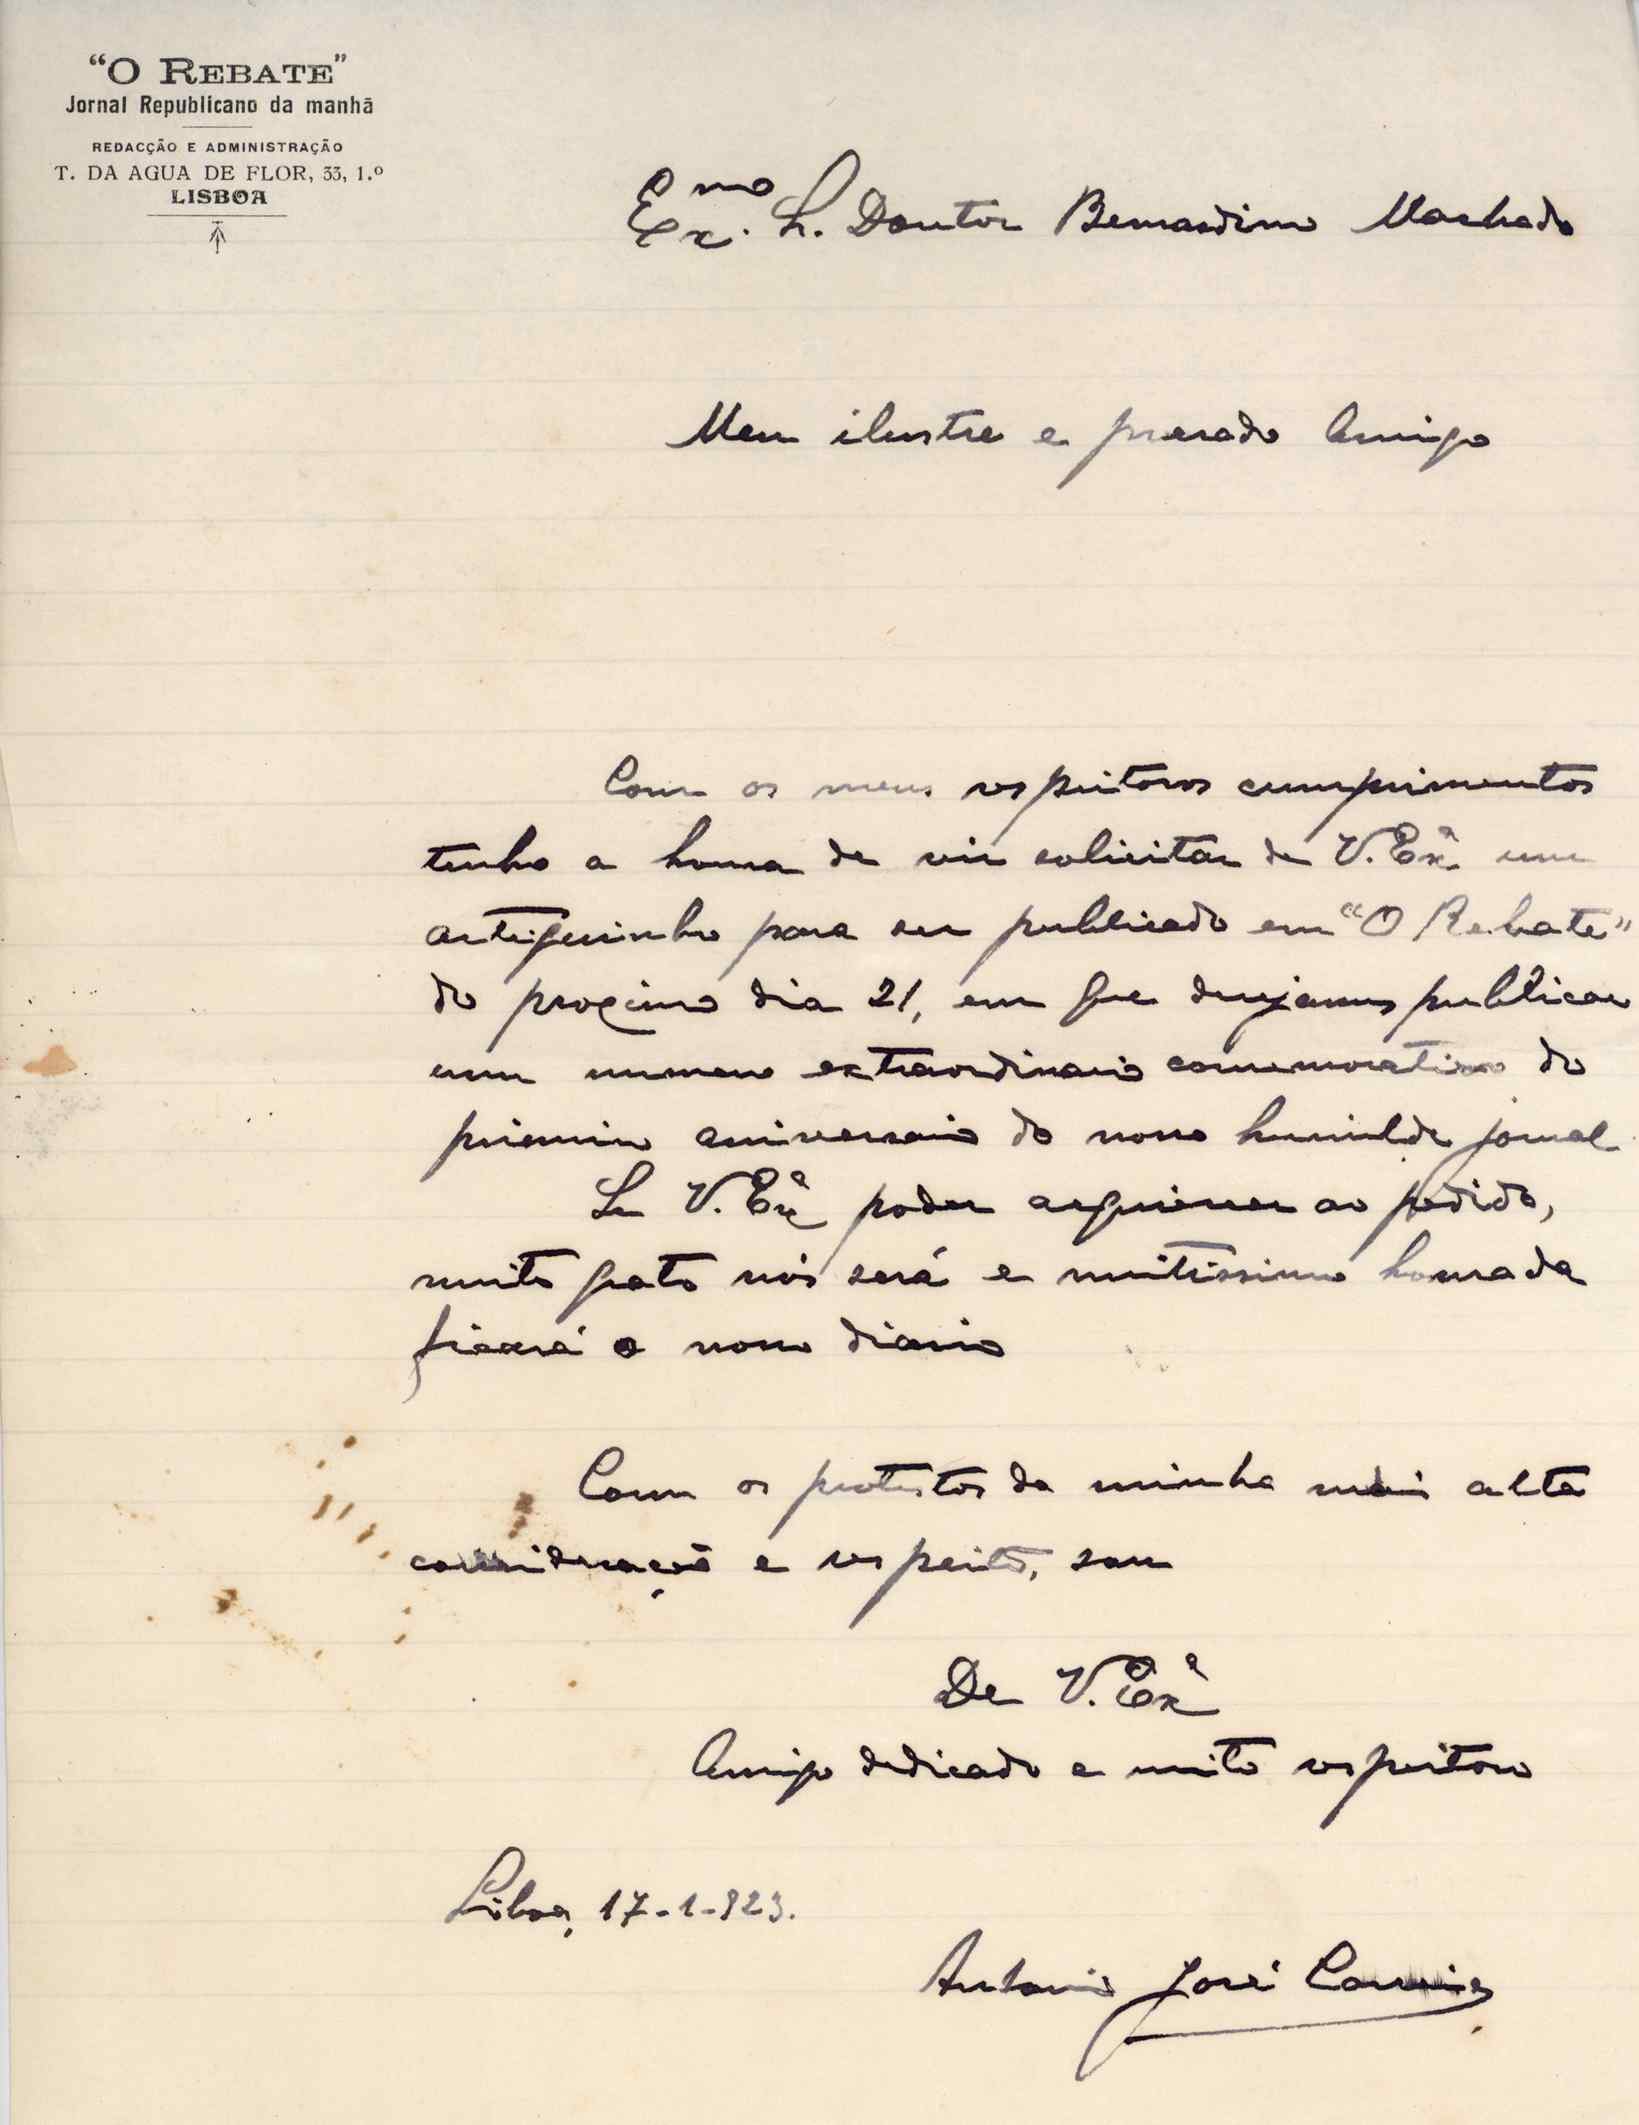 "O REBATE"
Jornal Republicano da manhã
REDACÇÃO E ADMINISTRAÇÃO
T. DA AGUA DE FLOR, 33, 1.º
LISBOA
Ex.mo Sr. Doutor Bernardino Machado
Meu ilustre e prezado Amigo
Com os meus respeitosos cumprimentos
tenho a honra de vir solicitar de V. Exª um
artiguinho para ser publicado em "O Rebate"
do proximo dia 21, em que desejamos publicar
um numero extraordinario comemorativo do
primeiro aniversario do nosso humilde jornal.
Se V. Exª poder aquiescer ao pedido,
muito grato nos será e muitissimo honrado
ficará o nosso diario
Com os protestos da minha mais alta
consideração e respeito, sou
De V. Exª
Amigo dedicado e muito respeitoso
Lisboa, 17-1-923.
Antonio José